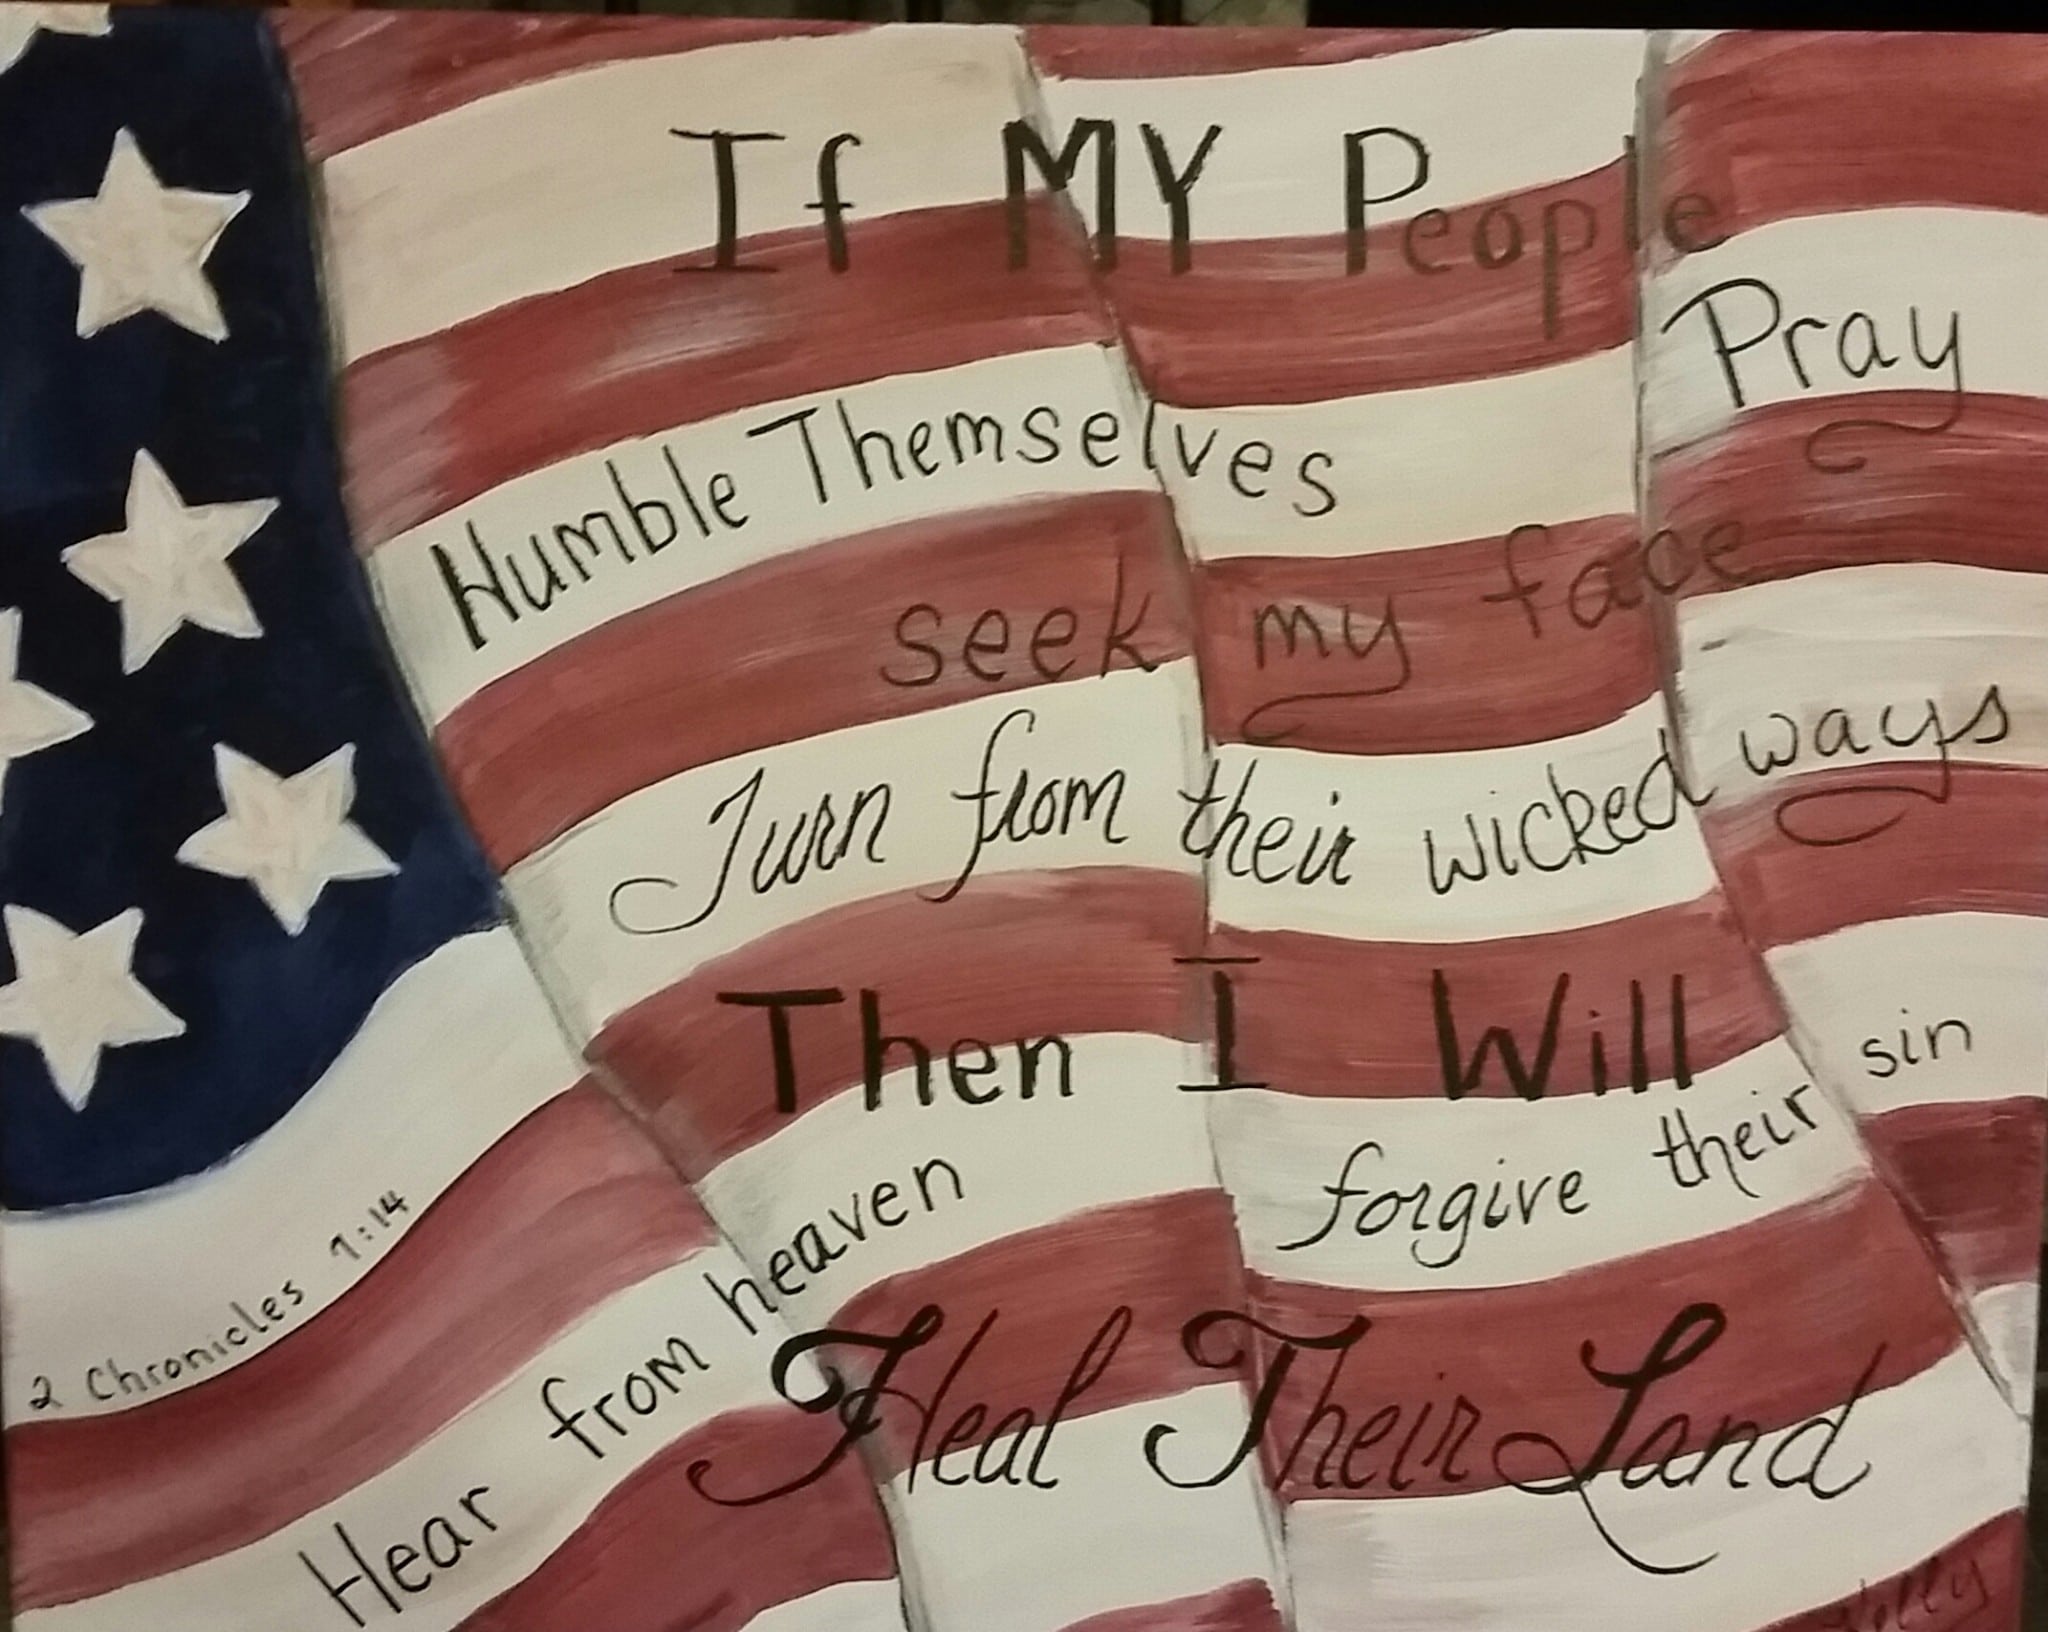 If MY People
Pray
Humble Themselves
seek my face
Turn from their wicked ways
Then I Will
Hear from heaven
forgive their sin
Heal Their Land
2 Chronicles 7:14
Holly